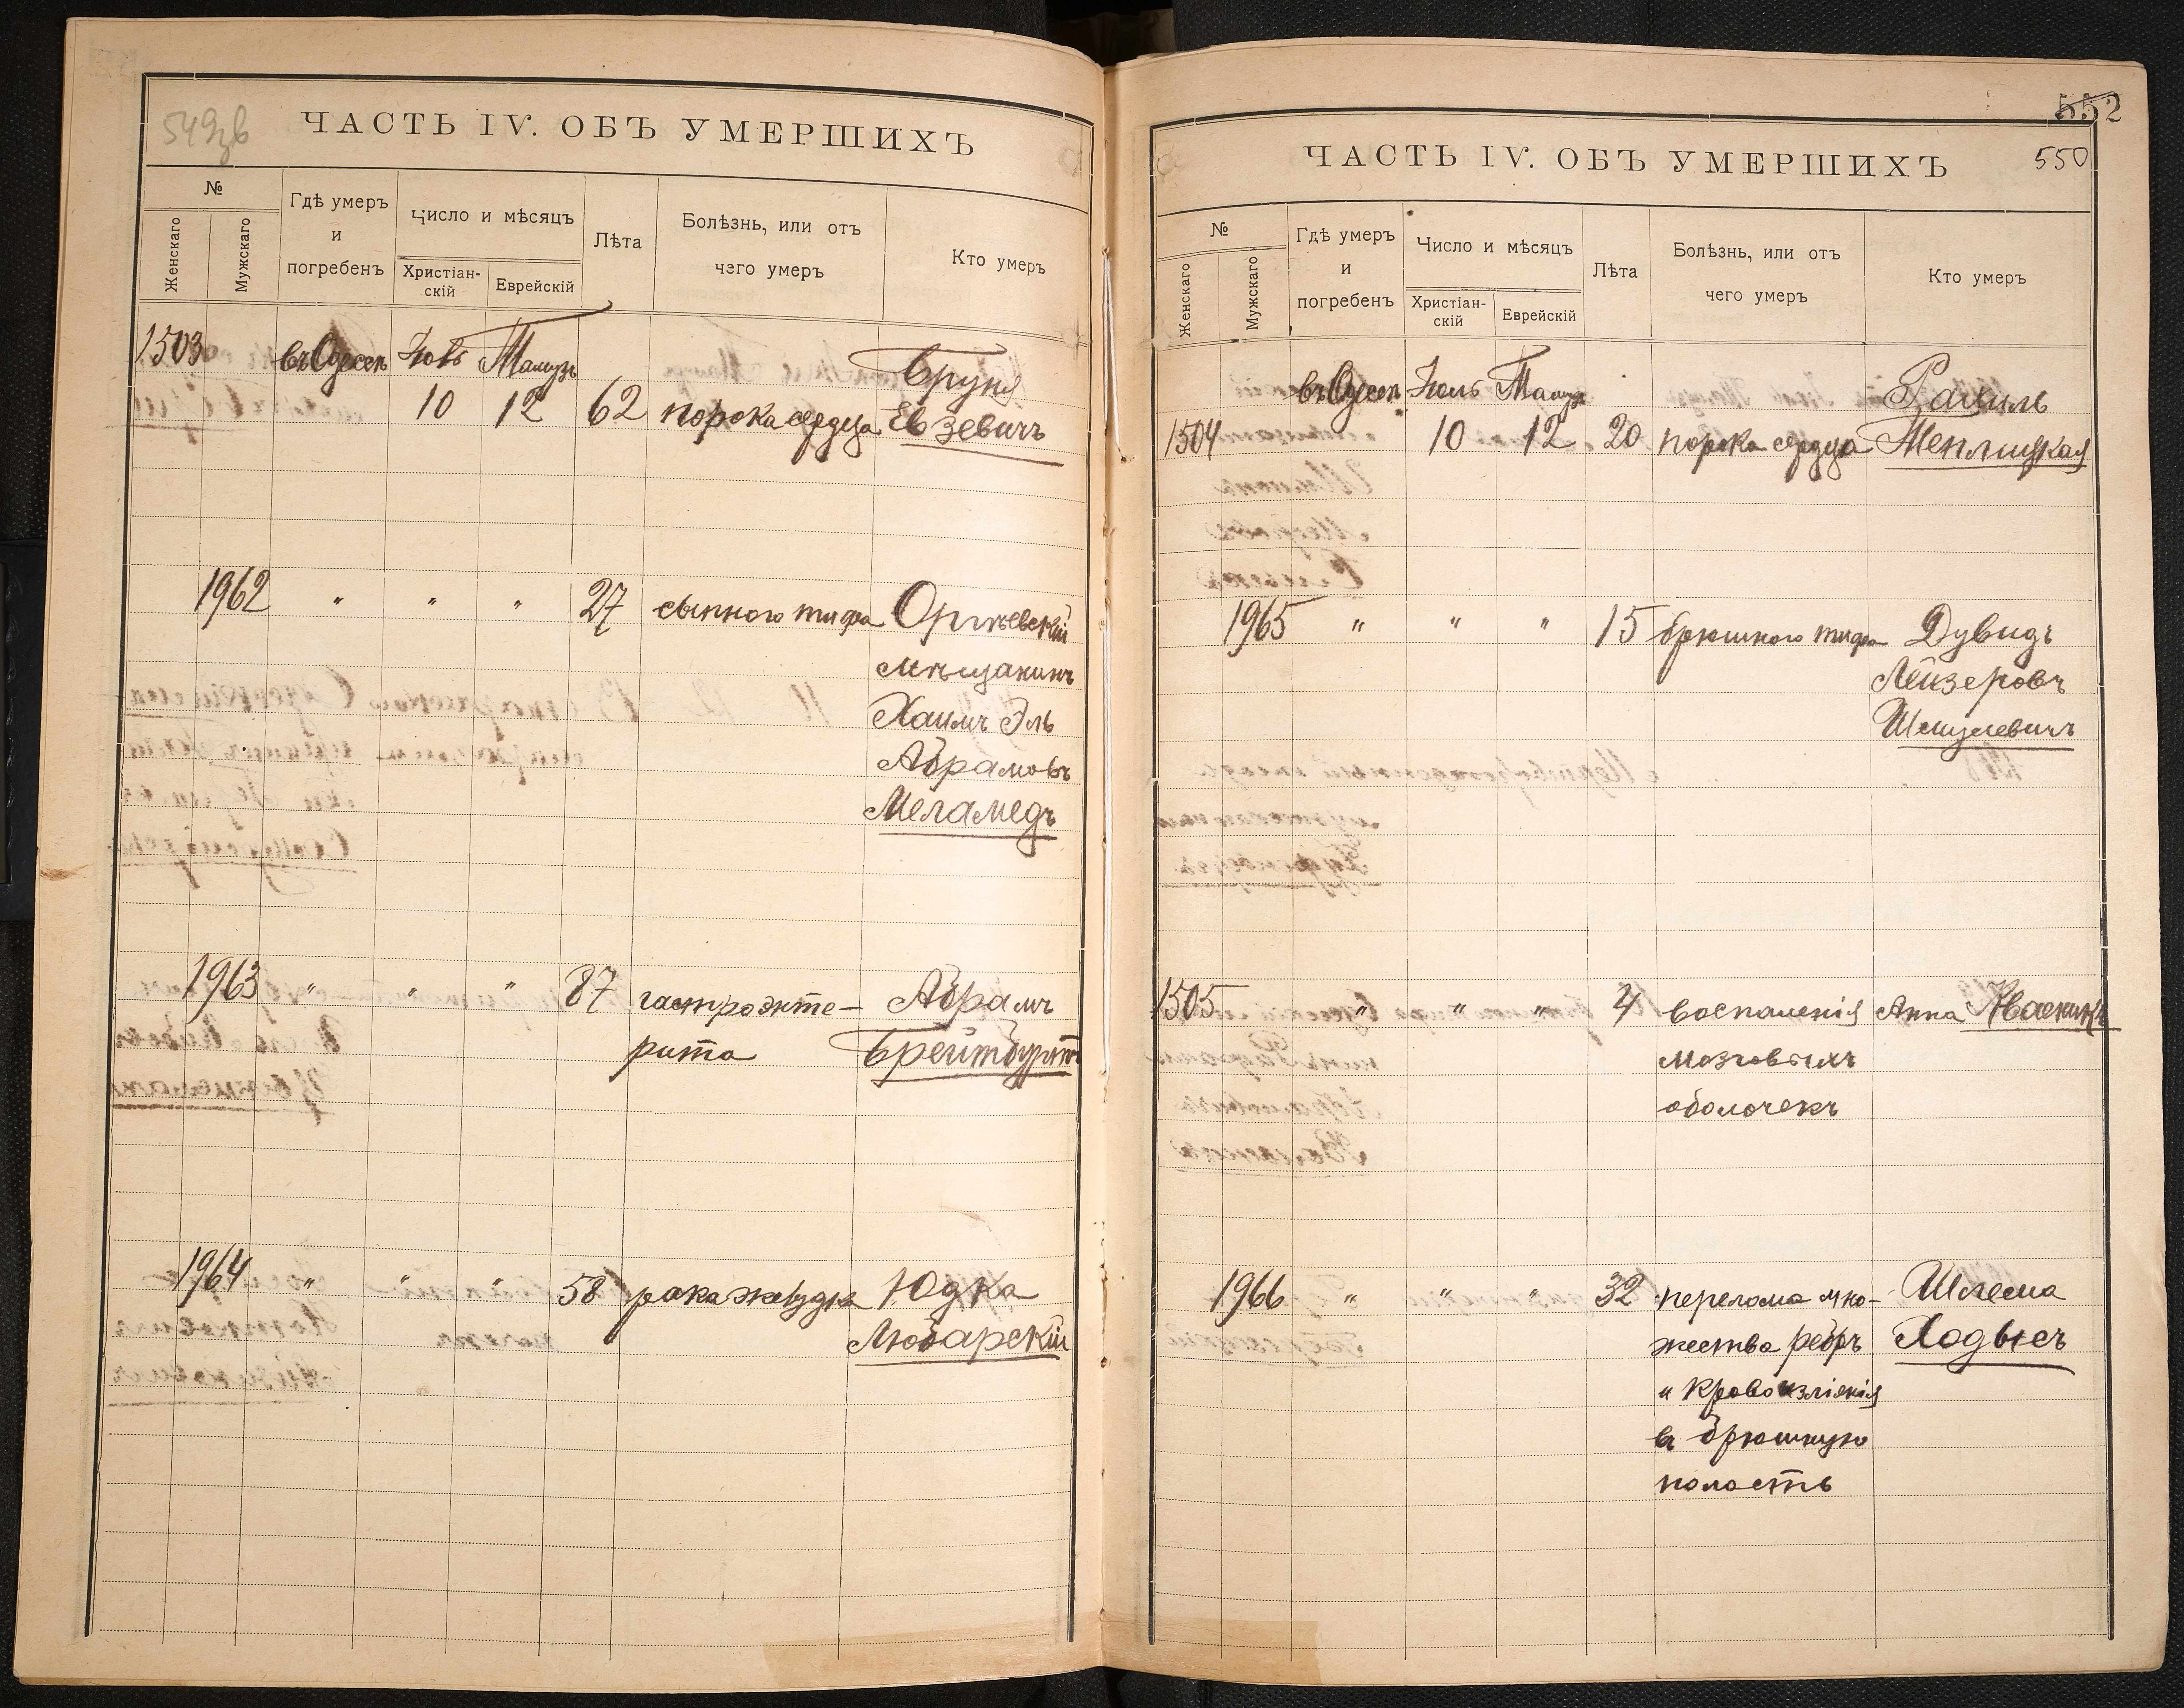 549 об
ЧАСТЬ IV. ОБЪ УМЕРШИХЪ
№
Женскаго
Мужскаго
Гдѣ умеръ
и
погребенъ
Число и мѣсяцъ
Христіан-
скій
Еврейскій
Лѣта
Болѣзнь, или отъ
чего умеръ
Кто умеръ
1503 въ Одессѣ Іюль Тамузъ Бруня
10 12 62 порока сердца Евзевичъ
1962 " " " 27 сыпного тифа Оргѣевскій
мѣщанинъ
Хаимъ Эль
Абрамовъ
Меламедъ
1963 " " " 87 гастроэнте- Абрамъ
рита Брейтбуртъ
1964 " " " 58 рака желудка Юдка
Любарскій
552
550
ЧАСТЬ IV. ОБЪ УМЕРШИХЪ
№
Женскаго
Мужскаго
Гдѣ умеръ
и
погребенъ
Число и мѣсяцъ
Христіан-
скій
Еврейскій
Лѣта
Болѣзнь, или отъ
чего умеръ
Кто умеръ
въ Одессѣ Іюль Тамузъ Рахиль
1504 10 12 20 порока сердца Теплицкая
1965 " " " 15 брюшного тифа Дувидъ
Лейзеровъ
Шмулевичъ
1505 " " " 4 воспаленія Анна
мозговыхъ
оболочекъ
1966 " " " 32 перелома мно- Шлема
жества ребръ Ходысъ
и кровоизліянія
въ брюшную
полость